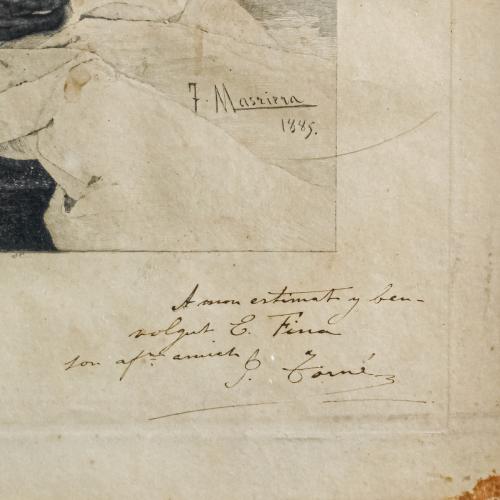 F. Masriera
1885.
A mon estimat y ben-
volgut E. Fina
son afm. amich
J. Torné